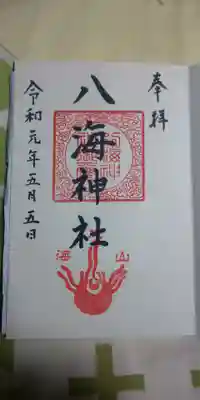 奉拝
八海神社
令和元年五月五日
山海